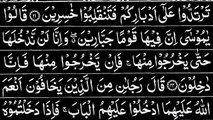 تَرْتَدُّوْا عَلٰٓى اَدْبَارِكُمْ فَتَنْقَلِبُوْا خٰسِرِيْنَ ﴿۲۱﴾ قَالُوْا
يٰمُوْسٰٓى اِنَّ فِيْهَا قَوْمًا جَبَّارِيْنَ ۖ وَاِنَّا لَنْ نَّدْخُلَهَا
حَتّٰى يَخْرُجُوْا مِنْهَا ۚ فَاِنْ يَّخْرُجُوْا مِنْهَا فَاِنَّا
دٰخِلُوْنَ ﴿۲۲﴾ قَالَ رَجُلٰنِ مِنَ الَّذِيْنَ يَخَافُوْنَ اَنْعَمَ
اللّٰهُ عَلَيْهِمَا ادْخُلُوْا عَلَيْهِمُ الْبَابَ ۚ فَاِذَا دَخَلْتُمُوْهُ